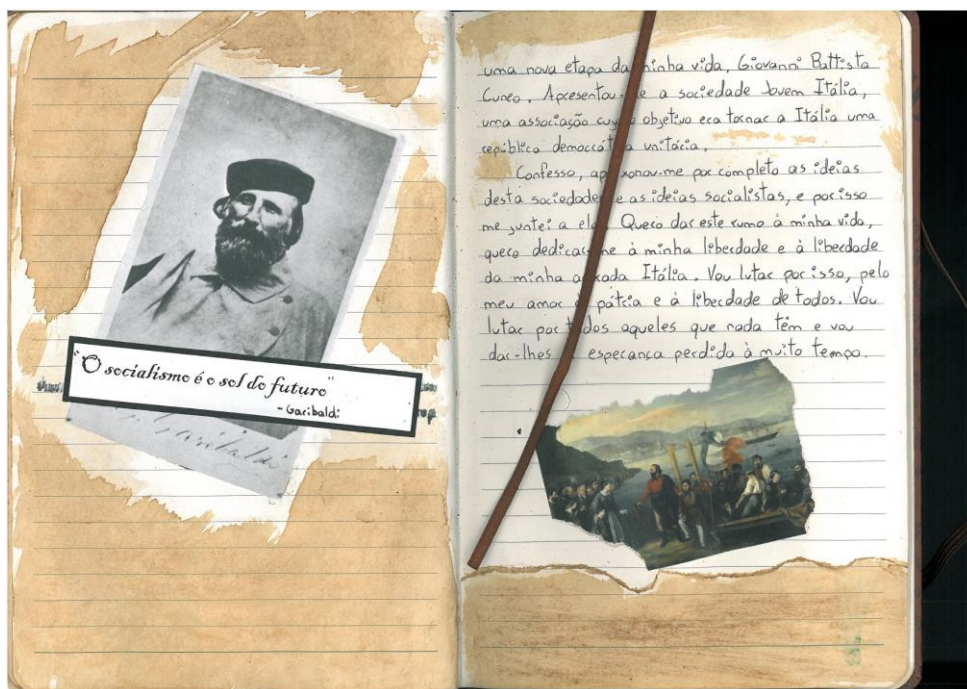 "O socialismo é o sol do futuro"
- Garibaldi
Garibaldi
uma nova etapa da minha vida, Giovanni Battista
Cuneo. Apresentou-me a sociedade Jovem Itália,
uma associação cujo objetivo era tornar a Itália uma
república democrática unitária.
Confesso, por completo as ideias
desta sociedade e as ideias socialistas, e por isso
me juntei a ela. Quero dar este rumo à minha vida,
quero dedicar-me à minha liberdade e à liberdade
da minha amada Itália. Vou lutar por isso, pelo
meu amor à pátria e à liberdade de todos. Vou
lutar por todos aqueles que nada têm e vou
dar-lhes esperança perdida à muito tempo.